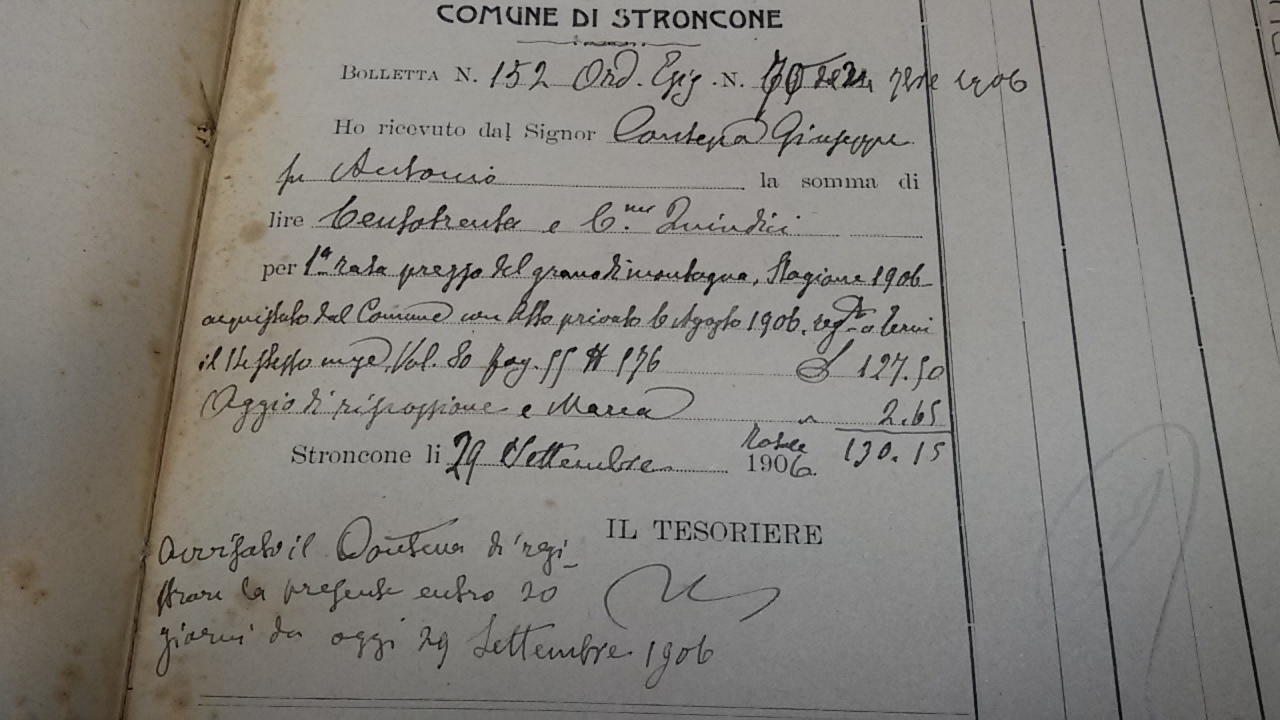 COMUNE DI STRONCONE
BOLLETTA N. 152 Ord. Esig. N. 7bre 1906
Ho ricevuto dal Signor Giuseppe
fu Antonio la somma di
lire Centotrenta e C.mi Quindici
per 1ª rata prezzo del grano di montagna, Stagione 1906
acquistato dal Comune con Atto privato 6 Agosto 1906, reg.to a Terni
il 11 stesso mese, Vol. 80 fog. 55 # 176 £ 127.50
Aggio di riscossione e Marca " 2.65
Totale 130.15
Stroncone li 29 Settembre 1906
IL TESORIERE
Avvisato il di regi-
strare la presente entro 20
giorni da oggi 29 Settembre 1906